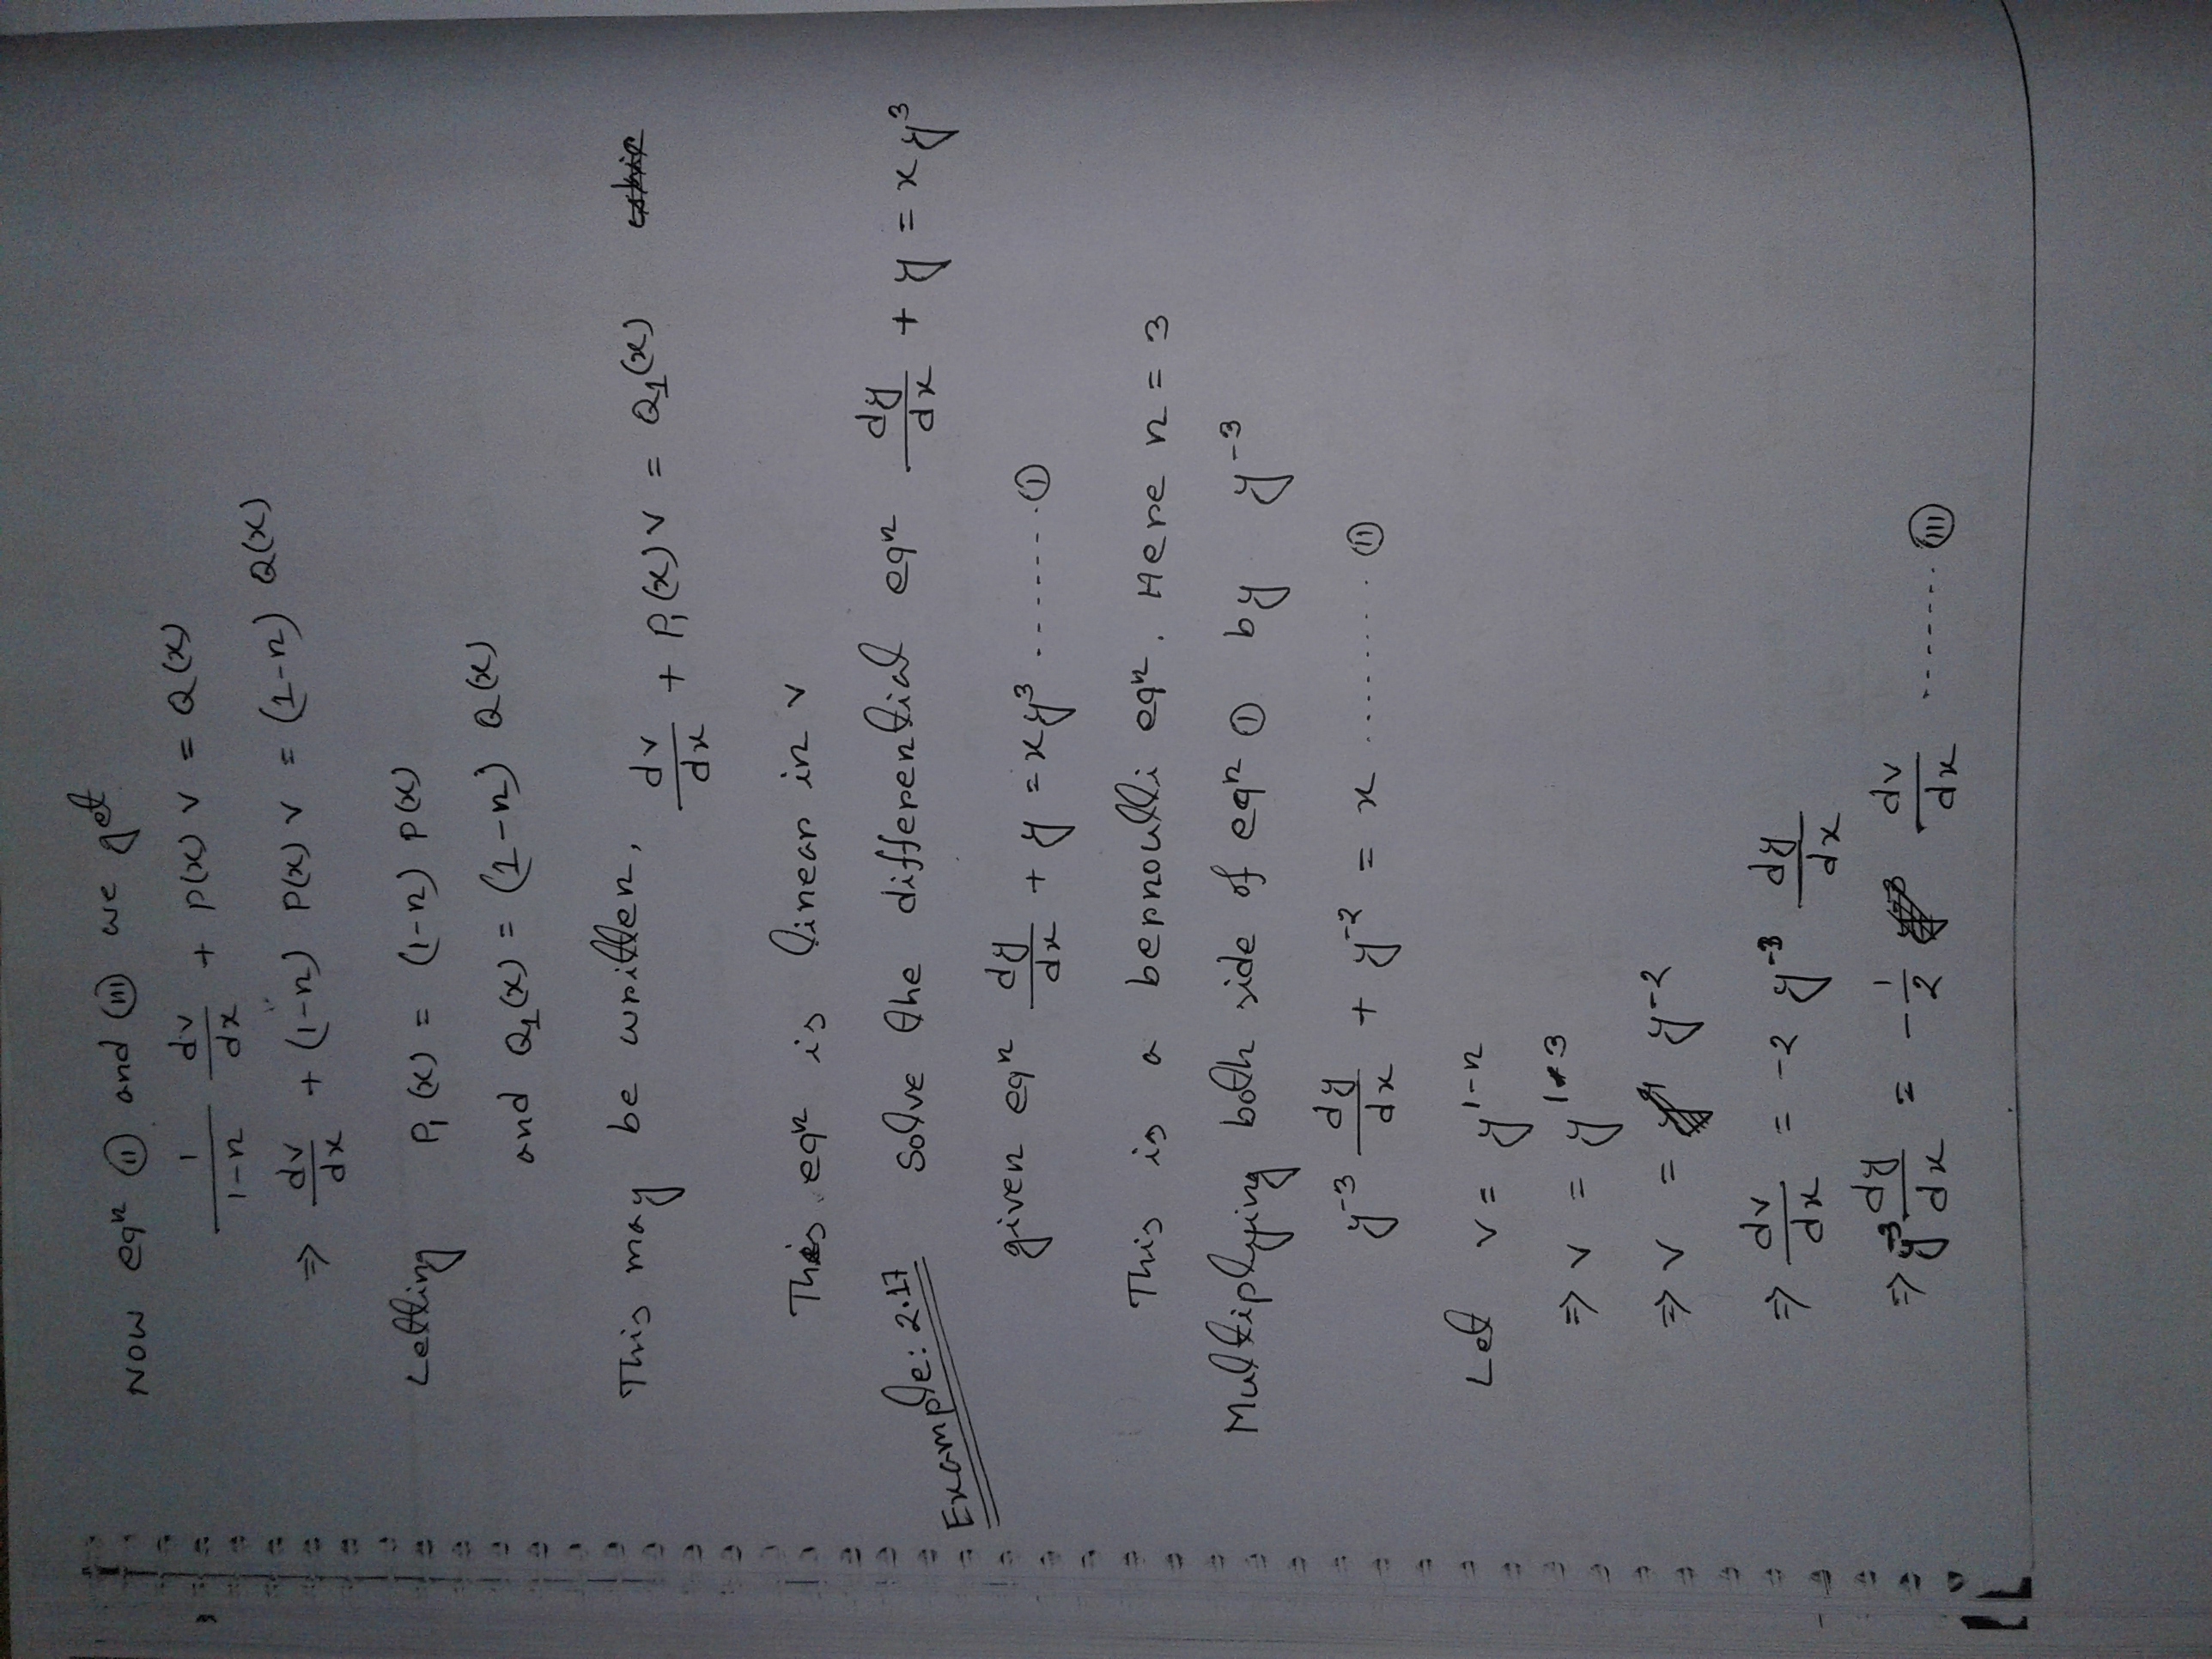 Now eqⁿ (ii) and (iii) we get
1/(1-n) dv/dx + P(x) v = Q(x)
⇒ dv/dx + (1-n) P(x) v = (1-n) Q(x)
Letting P₁(x) = (1-n) P(x)
and Q₁(x) = (1-n) Q(x)
This may be written, dv/dx + P₁(x) v = Q₁(x)
This eqⁿ is linear in v
Example: 2.17 Solve the differential eqⁿ dy/dx + y = xy³
given eqⁿ dy/dx + y = xy³ ....... (i)
This is a bernoulli eqⁿ. Here n = 3
Multiplying both side of eqⁿ (i) by y⁻³
y⁻³ dy/dx + y⁻² = x ........ (ii)
Let v = y¹⁻ⁿ
⇒ v = y¹⁻³
⇒ v = y⁻²
⇒ dv/dx = -2 y⁻³ dy/dx
⇒ y⁻³ dy/dx = -1/2 dv/dx ....... (iii)